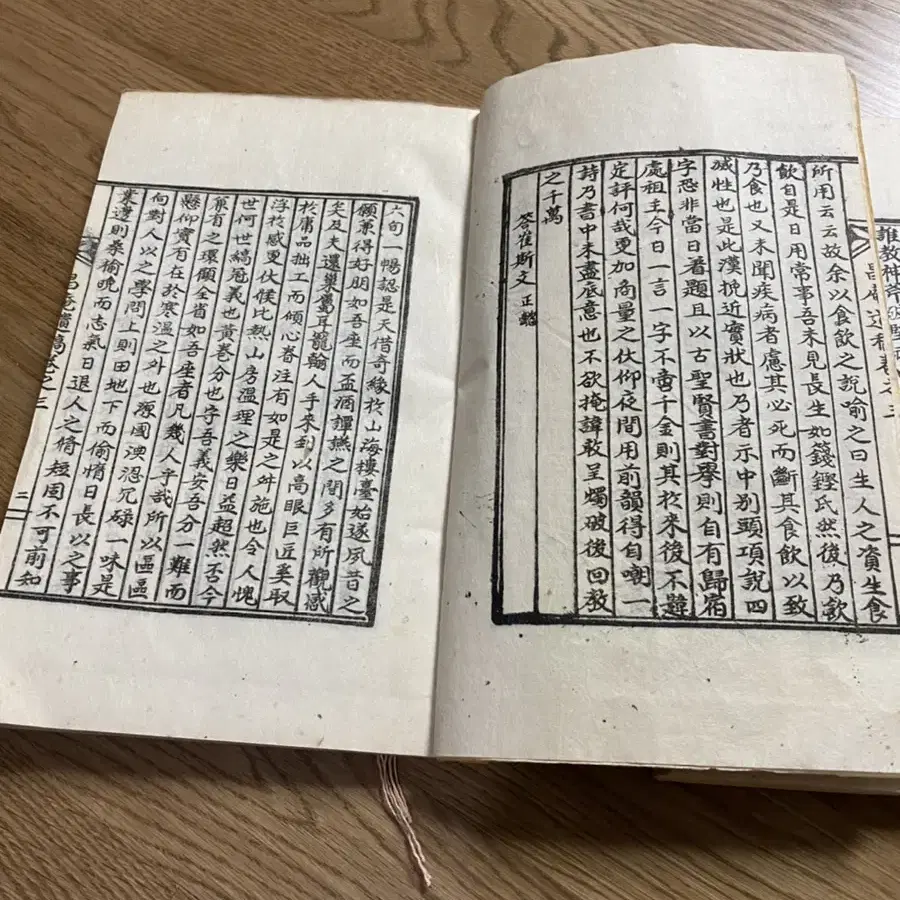 推教神斧破堅
昌庵遺稿卷之三
所用云云故余以食飮之說喻之曰生人之資生食
飮自是日用常事吾未見長生如籛鏗氏然後乃飮
乃食也又未聞疾病者慮其必死而斷其食飮以致
滅性也是此漢挽近實狀也乃者示中別頭項說四
字恐非當日著題且以古聖賢書對擧則自有歸宿
處租主今日一言一字不啻千金則其於來後不韙
定評何哉更加商量之伏仰夜間用前韻得自嘲一
詩乃書中未盡底意也不欲掩諱敢呈燭破後回敎
之千萬
答崔斯文 正懿
六旬一暢認是天借奇緣於山海樓臺始遂夙昔之
願兼得好朋如吾座而盃酒譚燕之間多有所觀感
矣及夫還巢 耳 翰人手來到以高眼巨匠奚取
於庸品拙工而傾心眷注有如是之舛施也令人愧
浮於感更伏候比熱山房溫理之樂日益超然否今
世何世縞冠義也黃卷分也字吾義安吾分一難而
兼有之環顧全省如吾座者凡幾人乎哉所以區區
懸仰實有在於寒溫之外也 國淟涊冗碌一味是
向對人以之學問上則田地下而偷惰日長以之事
業邊則桑榆晩而志氣日退人之脩短固不可前知
昌庵遺稿卷之三
三